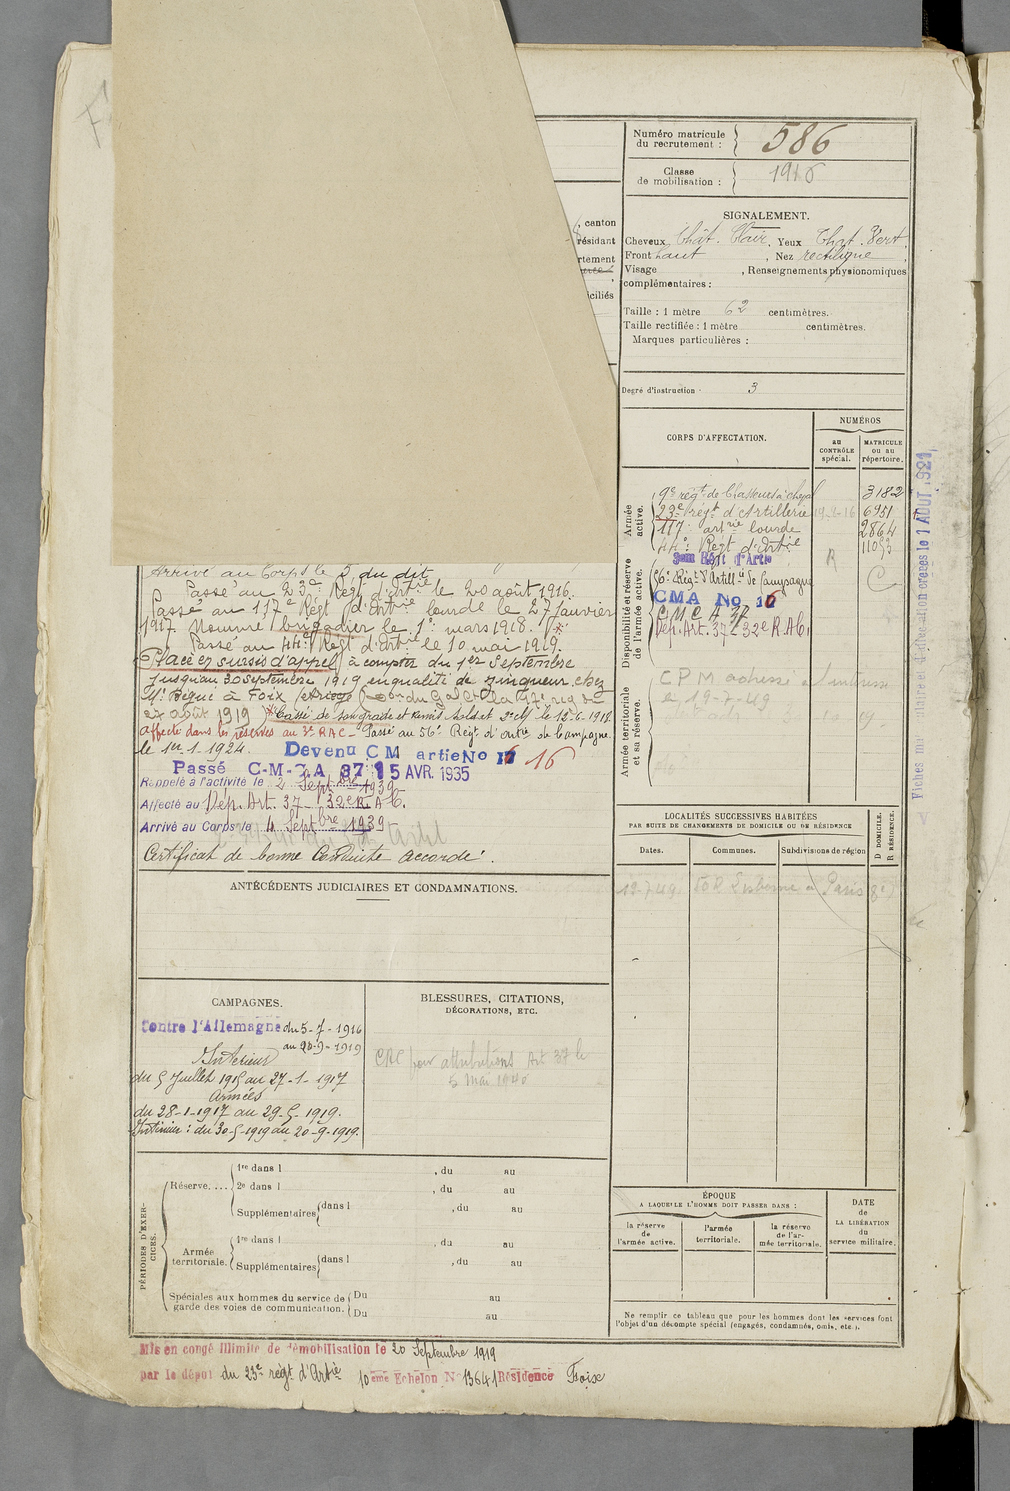 Numéro matricule
du recrutement : 586
Classe
de mobilisation : 1916
, canton
résidant
rtement
iciliés
SIGNALEMENT.
Cheveux Chât. Clair, Yeux Chat. Vert,
Front haut, Nez rectiligne,
Visage , Renseignements physionomiques
complémentaires :
Taille : 1 mètre 62 centimètres.
Taille rectifiée : 1 mètre centimètres.
Marques particulières :
Degré d'instruction : 3
CORPS D'AFFECTATION.
NUMÉROS
AU CONTRÔLE spécial.
MATRICULE OU AU répertoire.
Armée active.
9e régt de Chasseurs à cheval 3182
23e régt d'Artillerie 6951
117e artrie lourde 2864
44e Régt d'Artrie 11053
Disponibilité et réserve de l'armée active.
3em Régt d'Artie
56e Régt d'Artillie de Campagne
CMA No 16
CMCA 37
Dép. Art. 37 - 32e R.A.C.
R
C
Armée territoriale et sa réserve.
CPM adressé à l'intéressé
le 19-7-49
Fiches matriculaire et d'affectation créées le 1 AOUT 1921
Arrivé au Corps le 5 du dit
Passé au 23e Régt d'Artrie le 20 août 1916.
Passé au 117e Régt d'Artrie lourde le 27 janvier
1917. Nommé brigadier le 1er mars 1918. *
Passé au 44e Régt d'Artrie le 10 mai 1919.
Placé en sursis d'appel à compter du 1er Septembre
jusqu'au 30 Septembre 1919 en qualité de zingueur chez
Mr Bégué à Foix (Ariège)
27 août 1919) * Cassé de son grade et remis soldat 2e Cl le 13-6-1918.
Affecté dans les réserves au 3e RAC - Passé au 56e Régt d'Artie de Campagne
le 1er-1-1924. Devenu CM artie No 16
Passé C-M-CA 37 15 AVR. 1935
Rappelé à l'activité le 2 Septbre 1939
Affecté au Dép. Art. 37 - 32e R.A.C.
Arrivé au Corps le 4 Septbre 1939
Certificat de bonne Conduite accordé.
ANTÉCÉDENTS JUDICIAIRES ET CONDAMNATIONS.
LOCALITÉS SUCCESSIVES HABITÉES
PAR SUITE DE CHANGEMENTS DE DOMICILE OU DE RÉSIDENCE
Dates.
Communes.
Subdivisions de région
D DOMICILE.
R RÉSIDENCE.
19-7-49 50 R Lisbonne à Paris 8e
CAMPAGNES.
Contre l'Allemagne du 5-7-1916
au 20-9-1919
Intérieur
du 5 Juillet 1916 au 27-1-1917
Armées
du 28-1-1917 au 29-5-1919.
Intérieur : du 30-5-1919 au 20-9-1919.
BLESSURES, CITATIONS,
DÉCORATIONS, ETC.
pour attributions Art 37 le
5 mai 1940
PÉRIODES D'EXERCICES.
Réserve. ...
1re dans l , du au
2e dans l , du au
Supplémentaires dans l , du au
Armée territoriale.
1re dans l , du au
Supplémentaires dans l , du au
Spéciales aux hommes du service de
garde des voies de communication.
Du au
Du au
ÉPOQUE
A LAQUELLE L'HOMME DOIT PASSER DANS :
la réserve de l'armée active.
l'armée territoriale.
la réserve de l'armée territoriale.
DATE
de
LA LIBÉRATION
du
service militaire.
Ne remplir ce tableau que pour les hommes dont les services font
l'objet d'un décompte spécial (engagés, condamnés, omis, etc.).
Mis en congé illimité de démobilisation le 20 Septembre 1919
par le dépôt du 23e régt d'Artie 10eme Echelon No 13641 Résidence Foix